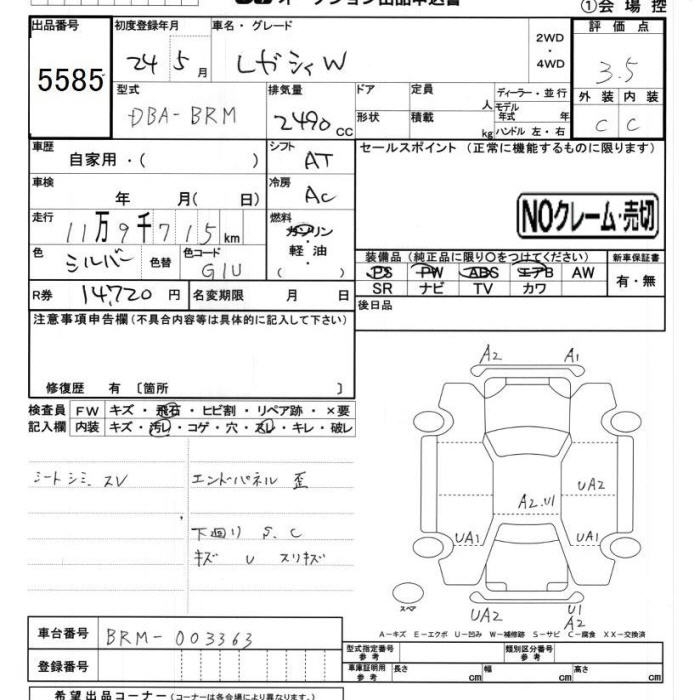 オークション出品申込書
①会場控
出品番号 5585
初度登録年月 24 5月
車名・グレード レガシィW
2WD・4WD
評価点 3.5
外装 内装
C C
型式 DBA-BRM
排気量 2490 CC
ドア 形状
定員 人
積載 kg
ディーラー・並行
モデル年式 年
ハンドル 左・右
車歴 自家用・( )
シフト AT
セールスポイント (正常に機能するものに限ります)
車検 年 月( 日)
冷房 AC
NOクレーム・売切
走行 11万9千715km
燃料 ガソリン
軽・油
( )
色 シルバー 色替
色コード G1U
装備品 (純正品に限り○をつけてください)
新車保証書
PS PW ABS エアB AW
有・無
SR ナビ TV カワ
R券 14,720円
名変期限 月 日
後日品
注意事項申告欄(不具合内容等は具体的に記入して下さい)
修復歴 有 〔箇所 〕
検査員 FW キズ・飛石・ヒビ割・リペア跡・×要
記入欄 内装 キズ・汚レ・コゲ・穴・スレ・キレ・破レ
シートシミ、スV
エンドパネル 歪
下回り S、C
キズ U スリキズ
A2 A1
UA2
A2.U1
UA1 UA1
スペア
UA2 U1
A2
A-キズ E-エクボ U-凹み W-補修跡 S-サビ C-腐食 XX-交換済
車台番号 BRM-003363
登録番号
型式指定番号 参考
類別区分番号 参考
車庫証明用 参考 長さ cm 幅 cm 高さ cm
希望出品コーナー (コーナーは各会場により異なります。)